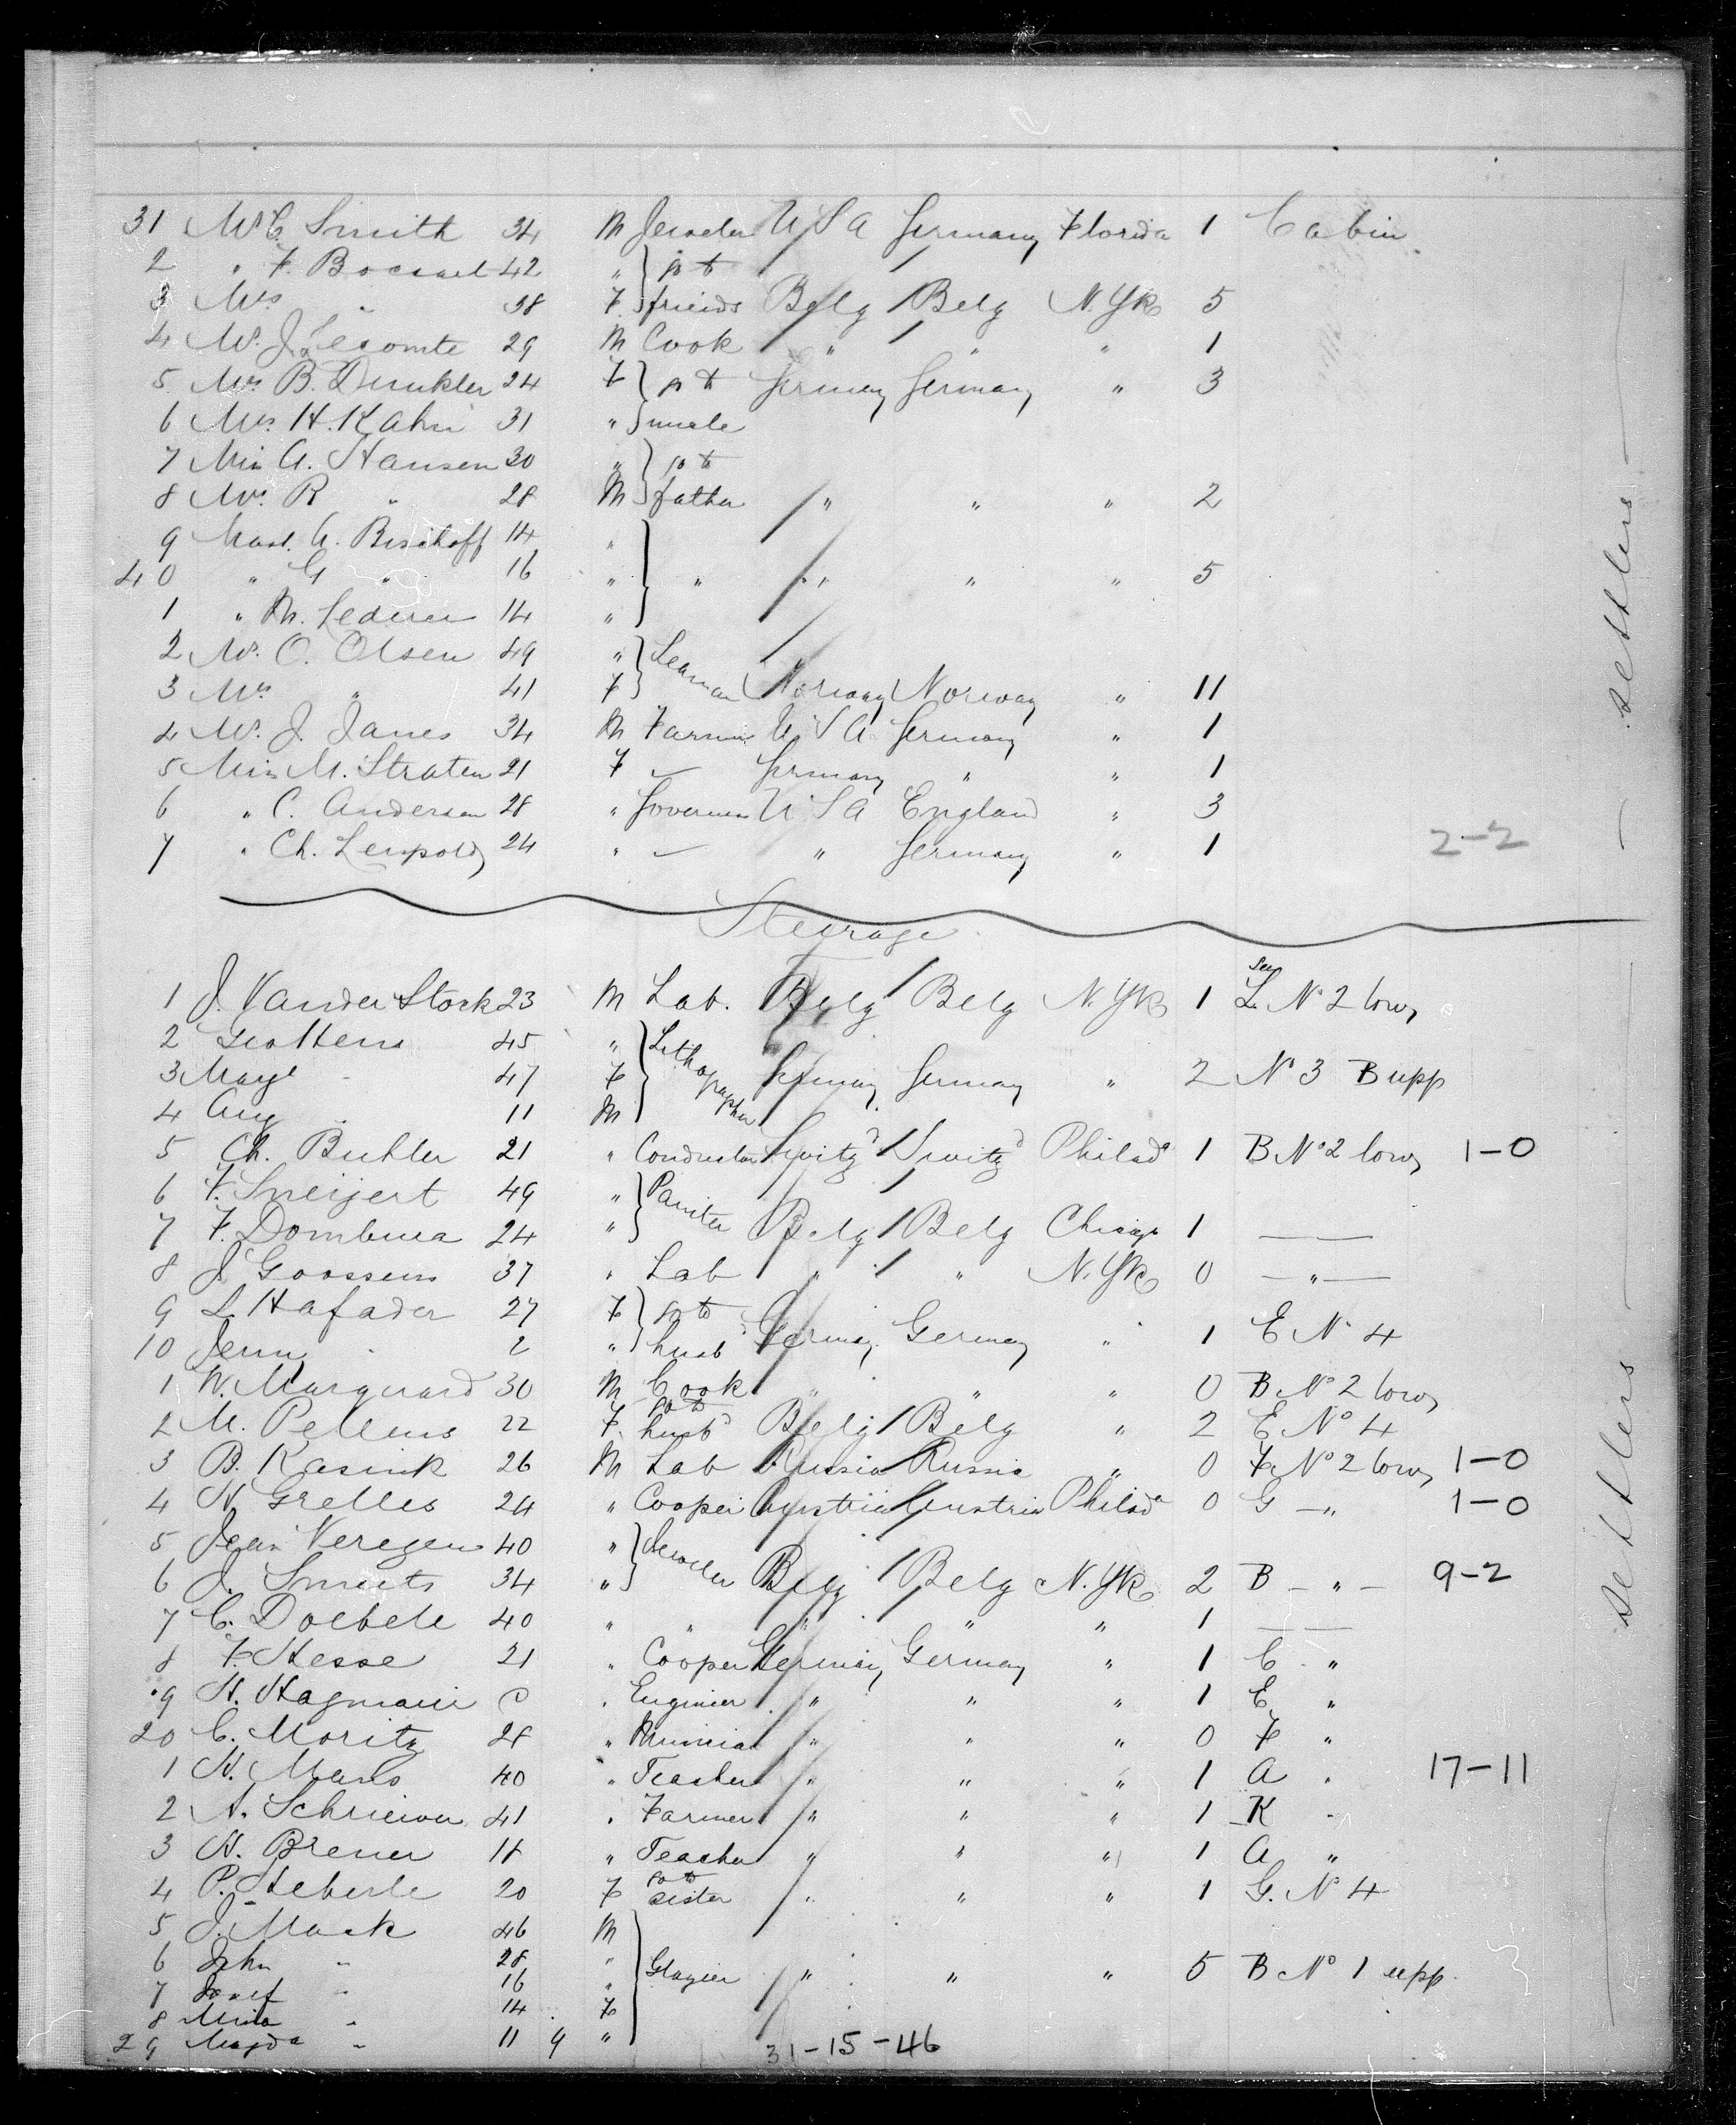 31 Mr C. Smith 34 M Jeweler U S A Germany Florida 1 Cabin
2 " F. 42 " } go to
3 Mrs " 38 F } friends Belg Belg N. Yk 5
4 Mr. J. Lecomte 29 M Cook " " " 1
5 Mrs B. Dunkler 24 F } go to Germany Germany " 3
6 Mrs H. Kahn 31 " } uncle
7 Miss A. Hansen 30 " } go to
8 Mr. R " 28 M } father " " " 2
9 Mast. A. Bischoff 14 "
40 " G " 16 " } " " " " 5
1 " M. Lederer 14 "
2 Mr. O. Olsen 49 " } Seaman
3 Mrs " 41 F } Norway Norway " 11
4 Mr. J. Janes 34 M Farmer U S A Germany " 1
5 Miss M. Straten 21 F — Germany " " 1
6 " C. Anderson 28 " Governess U S A England " 3
7 " Ch. Leupold 24 " — " Germany " 1 2-2
Steerage
1 J. Vander Stock 23 M Lab. Belg Belg N. Yk 1 L. No 2 low
2 45 " } Lithographer
3 47 F } Germany Germany " 2 No 3 B upp
4 Aug " 11 M }
5 Ch. Buhler 21 " Conductor Switzd Switzd Philada 1 B No 2 low 1-0
6 F. Sneijert 49 " } Painter
7 F. 24 " } Belg Belg Chicago 1 ——
8 J. Goossens 37 " Lab " " N. Yk 0 — " —
9 L. Hafader 27 F } go to
10 Jenny " 2 " } husbd Germany Germany " 1 E No 4
1 W. Marquard 30 M Cook " " " 0 B No 2 low
2 M. Pellens 22 F. go to husbd Belg Belg " 2 E No 4
3 B. Kasink 26 M Lab Russia Russia " 0 F No 2 low 1-0
4 N. Grelles 24 " Cooper Austria Austria Philada 0 G — " 1-0
5 Jean Veregen 40 " } Jeweler
6 J. Smeets 34 " } Belg Belg N. Yk 2 B — " — 9-2
7 C. Doebele 40 " " " " " 1 ——
8 F. Hesse 21 " Cooper Germany Germany " 1 C "
9 H. Hagmaier " Engineer " " " 1 E "
20 C. Moritz 28 " " " " 0 F "
1 H. Mans 40 " Teacher " " " 1 A " 17-11
2 A. 41 " Farmer " " " 1 K "
3 H. Brener 18 " Teacher " " " 1 A "
4 P. Heberle 20 F go to sister " " " 1 G. No 4
5 J. Mack 46 M
6 John " 28 " } Glazier " " " 5 B No 1 upp.
7 Josef " 16 "
8 Mina " 14 F
29 Magda " 11 9 "
31-15-46
— settlers —
— settlers —